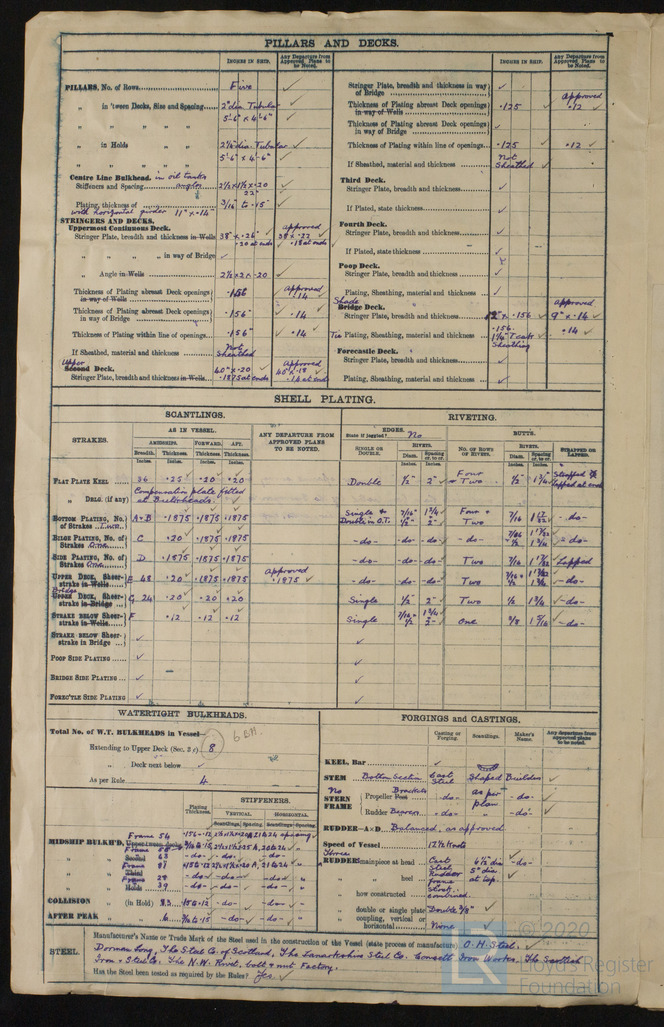 PILLARS AND DECKS.
INCHES IN SHIP. Any Departure from Approved Plans to be Noted.
PILLARS, No. of Rows Five ✓
„ in 'tween Decks, Size and Spacing 2" dia Tubular ✓
5'-6" x 4'-6"
„ in Holds 2½" dia. Tubular ✓
5'-6" x 4'-6"
Centre Line Bulkhead. in oil tanks
Stiffeners and Spacing angles 2½ x 1½ x .20 ✓
22"
Plating, thickness of 3/16 to .15 ✓
with horizontal girder 11" x .14"
STRINGERS AND DECKS.
Uppermost Continuous Deck.
Stringer Plate, breadth and thickness in Wells 38" x .26"
.20 at ends
approved
.18 at ends
„ „ „ „ in way of Bridge ✓
„ Angle in Wells 2½ x 2 x .20 ✓
Thickness of Plating abreast Deck openings in way of Wells .156 approved .14 ✓
Thickness of Plating abreast Deck openings in way of Bridge .156" .14 ✓
Thickness of Plating within line of openings .156" .14 ✓
If Sheathed, material and thickness Not Sheathed
Upper
Second Deck.
Stringer Plate, breadth and thickness in Wells 40" x .20 ✓
.1875 at ends
approved
40" x .18
.14 at ends
INCHES IN SHIP. Any Departure from Approved Plans to be Noted.
Stringer Plate, breadth and thickness in way of Bridge ✓
Thickness of Plating abreast Deck openings in way of Wells .125 ✓ approved .12 ✓
Thickness of Plating abreast Deck openings in way of Bridge ✓
Thickness of Plating within line of openings .125 ✓ .12 ✓
If Sheathed, material and thickness Not Sheathed ✓
Third Deck.
Stringer Plate, breadth and thickness ✓
If Plated, state thickness ✓
Fourth Deck.
Stringer Plate, breadth and thickness ✓
If Plated, state thickness ✓
Poop Deck.
Stringer Plate, breadth and thickness ✓
Plating, Sheathing, material and thickness ✓
Shade
Bridge Deck.
Stringer Plate, breadth and thickness x .156 approved 9" x .14 ✓
Tie Plating, Sheathing, material and thickness .156 ✓ .14 ✓
1¼" Teak
Sheathing
Forecastle Deck.
Stringer Plate, breadth and thickness ✓
Plating, Sheathing, material and thickness ✓
SHELL PLATING.
SCANTLINGS. RIVETING.
STRAKES. AS IN VESSEL. ANY DEPARTURE FROM APPROVED PLANS TO BE NOTED. EDGES. State if joggled? No BUTTS.
AMIDSHIPS. FORWARD. AFT. SINGLE OR DOUBLE. RIVETS. NO. OF ROWS OF RIVETS. RIVETS. STRAPPED OR LAPPED.
Breadth. Thickness. Thickness. Thickness. Diam. Spacing cr. to cr. Diam. Spacing cr. to cr.
FLAT PLATE KEEL 36 .25 .20 .20 Double ½" 2" Four Two ½" Strapped lapped at ends
„ DBLG. (if any) Compensation plate fitted at Bulkheads
BOTTOM PLATING, No. of Strakes Two A & B .1875 .1875 .1875 Single & Double in O.T. 7/16" 1¾ ½" 2" Four & Two 7/16 1 17/32 -do-
BILGE PLATING, No. of Strakes One C .20 .1875 .1875 -do- -do- -do- -do- -do-
SIDE PLATING, No. of Strakes One D .1875 .1875 .1875 -do- -do- -do- Two 7/16 1 17/32 Lapped
UPPER DECK, Sheerstrake in Wells E 48 .20 .1875 .1875 approved .1875 ✓ -do- -do- -do- Two -do-
Bridge
UPPER DECK, Sheerstrake in Bridge G 24 .20 .20 .20 Single ½ 2" Two ½ 1¾ -do-
STRAKE BELOW Sheerstrake in Wells F .12 .12 .12 Single 7/16 ½ 1¾ 2" One 3/8 1 5/16 -do-
STRAKE BELOW Sheerstrake in Bridge ✓ ✓
POOP SIDE PLATING ✓ ✓
BRIDGE SIDE PLATING ✓ ✓
FOREC'TLE SIDE PLATING ✓ ✓
WATERTIGHT BULKHEADS.
Total No. of W.T. BULKHEADS in Vessel—
Extending to Upper Deck (Sec. 3 c) 8 6 BH.
„ Deck next below ✓
As per Rule 4
Plating Thickness. STIFFENERS.
VERTICAL. HORIZONTAL.
Scantlings. Spacing. Scantlings. Spacing.
MIDSHIP BULKH'D, Frame 54
Upper 'tween decks
„ Second 63 -do- -do- -do-
„ Third
„ Holds 39 -do- -do- -do-
COLLISION „ (in Hold) -do- -do-
AFTER PEAK „ 6 -do- -do-
FORGINGS and CASTINGS.
Casting or Forging. Scantlings. Maker's Name. Any departure from approved plans to be noted.
KEEL, Bar ✓
STEM Bottom Section Cast Steel Shaped Builders ✓
No STERN FRAME Propeller Post Brackets -do- as per plan -do- ✓
Rudder -do- „ -do- ✓
RUDDER—A×D Balanced, as approved
Speed of Vessel 12½ Knots
Three
RUDDERS mainpiece at head Cast Steel 6½" dia -do-
„ „ heel Rudder frame 5" dia at top.
„ how constructed Stock combined
„ double or single plate Double ✓
„ coupling, vertical or horizontal None ✓
STEEL.
Manufacturer's Name or Trade Mark of the Steel used in the construction of the Vessel (state process of manufacture) O. H. Steel. ✓
Dorman Long, The Steel Co. of Scotland, The Lanarkshire Steel Co. Consett Iron Works. The Scottish
Iron & Steel Co. The N.W. Rivet, bolt & nut Factory.
Has the Steel been tested as required by the Rules? Yes. ✓
© 2020
Lloyd's Register
Foundation